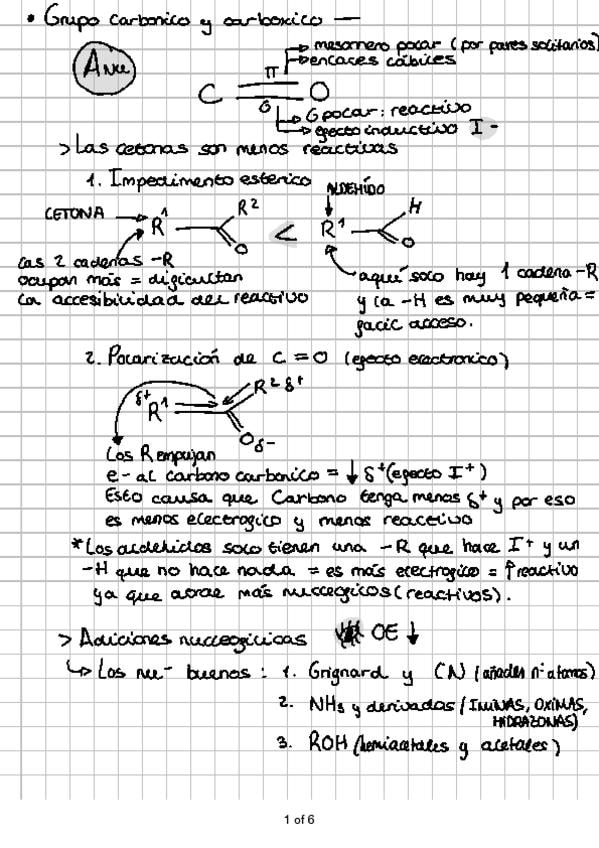 • Grupo carbonico y carboxico —
ANu
π
mesomero polar (por pares solitarios)
enlaces lábiles
C
O
G
G polar: reactivo
efecto inductivo I -
> Las cetonas son menos reactivas
1. Impedimento esterico
ALDEHÍDO
CETONA
R¹
R²
O
<
R¹
H
O
las 2 cadenas -R
ocupan más = dificultan
la accesibilidad del reactivo
aquí solo hay 1 cadena -R
y la -H es muy pequeña =
facil acceso.
2. Polarización de C=O (efecto electronico)
δ+
R¹
R² δ+
O
δ-
Los R empujan
e- al carbono carbonico = ↓ δ+ (efecto I+)
Esto causa que Carbono tenga menos δ+ y por eso
es menos electrofico y menos reactivo
*Los aldehidos solo tienen una -R que hace I+ y un
-H que no hace nada = es más electrofico = ↑ reactivo
ya que atrae más nucleoficos (reactivos).
> Adiciones nucleoficicas OE ↓
↳ Los nu- buenos: 1. Grignard y CN (añades nº atomos)
2. NH3 y derivados (IMINAS, OXIMAS,
HIDRAZONAS)
3. ROH (hemiacetales y acetales)
1 of 6